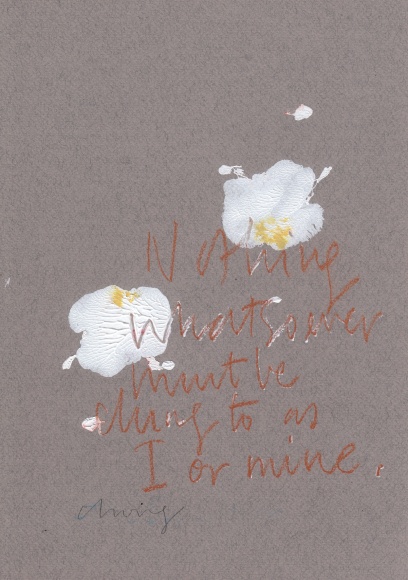 Nothing
whatsoever
must be
clung to as
I or mine.